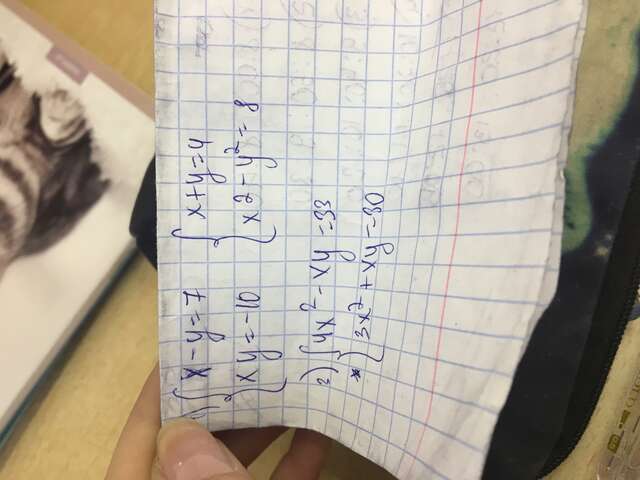 1) { x - y = 7
xy = -10
{ x + y = 4
x2 - y² = 8
2) { 4x² - xy = 33
* 3x² + xy = 30